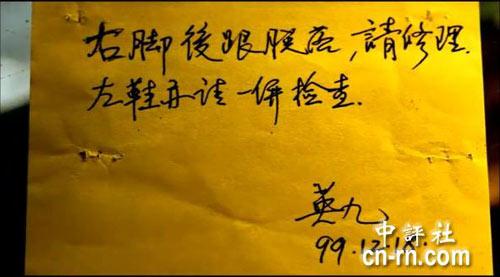 右脚後跟脫落,請修理.
左鞋亦请一併检查.
英九
99.12.18.
中評社
cn-rn.com